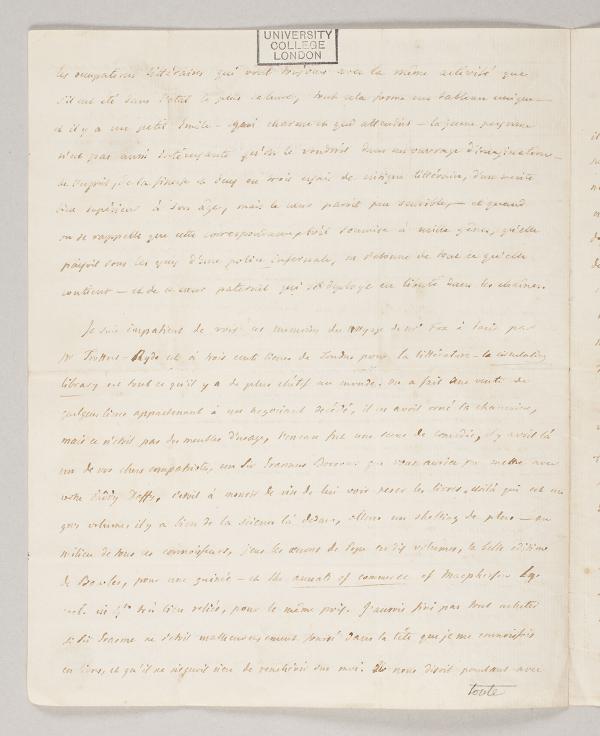 UNIVERSITY
COLLEGE
LONDON
les occupations littéraires qui vont toujours avec la même activité que
s'il eut été dans l'état le plus calme, tout cela forme un tableau unique —
et il y a une petite Emile - qui charme et qui attendrit — la jeune personne
n'est pas aussi intéressante qu'on le voudroit dans un ouvrage d'imagination —
de l'esprit, de la finesse et deux ou trois essais de critique littéraire, d'un mérite
bien supérieur à son âge, mais le cœur paroit peu sensible, — et quand
on se rappelle que cette correspondance étoit soumise à mille gênes, qu'elle
passoit sous les yeux d'une police infernale, on s'étonne de tout ce qu'elle
contient — et de ce cœur paternel qui se déploye en liberté dans les chaînes.
Je suis impatient de voir ces memoires du voyage de Mr Fox à Paris par
Mr Trotter - Ryde est à trois cent lieues de Londres pour la littérature — la circulating
library est tout ce qu'il y a de plus chétif au monde. On a fait une vente de
quelques livres appartenant à un negociant décédé, il en avoit orné sa chaumière,
mais ce n'étoit pas des meubles d'usage, l'encan fut une scene de comédie, il y avoit là
un de vos chers compatriotes, un Sir Erasmus que vous auriez pu mettre avec
votre c'étoit à mourir de rire de lui voir peser les livres, voilà qui est un
gros volume, il y a bien de la science là dedans, allons un shelling de plus — au
milieu de tous ces connoisseurs, j'eus les œuvres de Pope en dix volumes, la belle édition
de Bowles, pour une guinée — et the annals of commerce of Macpherson
in 4to très bien reliés, pour le même prix. J'aurois fini par tout acheter
si Sir Erasme ne s'étoit malheureusement fourré dans la tête que je me connoissois
en livres, et qu'il ne risquoit rien de renchérir sur moi. Il nous disoit pourtant avec
toute